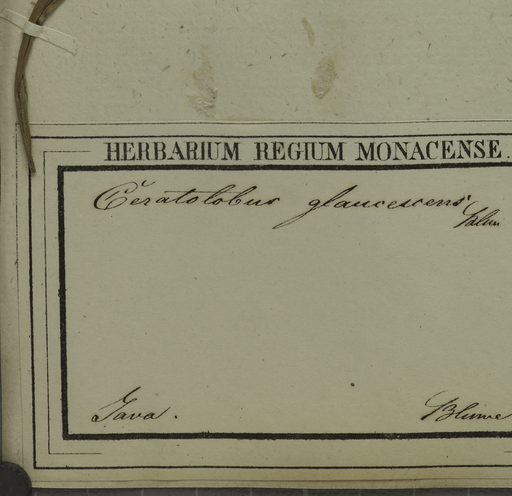 HERBARIUM REGIUM MONACENSE.
Ceratolobus glaucescens Blum
Java.
Blume